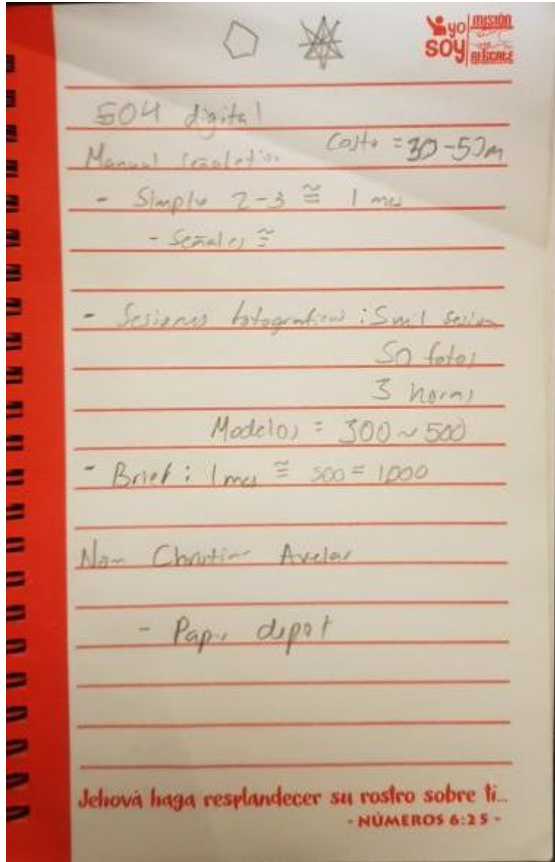 yo SOY MISIÓN RESCATE
504 digital
Costo = 30-50m
Manual
- Simple 2-3 ≅ 1 mes
- Señales ≅
- Sesiones fotograficas : 5mil Sesion
50 fotos
3 horas
Modelos = 300 ~ 500
- Brief : 1 mes ≅ 500 = 1000
Christian Avelar
- depot
Jehová haga resplandecer su rostro sobre ti...
- NÚMEROS 6:25 -